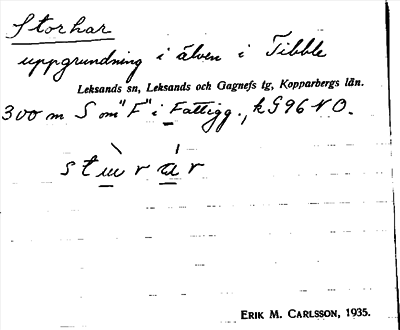 Storhar
uppgrundning i älven i Tibble
Leksands sn, Leksands och Gagnefs tg, Kopparbergs län.
300 m S om "F" i Fattigg., k G 96 NO.
ERIK M. CARLSSON, 1935.